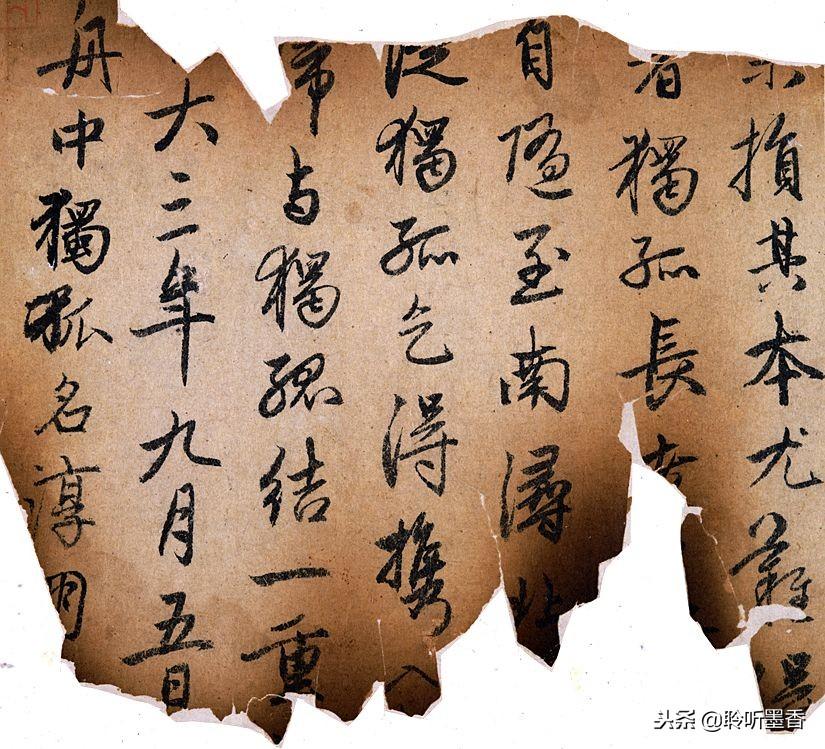 未損其本尤難得
者獨孤長
自隨至南潯北
從獨孤乞得攜入
歸与獨孤結一重
大三年九月五日
舟中獨孤名淳朋
头条 @聆听墨香